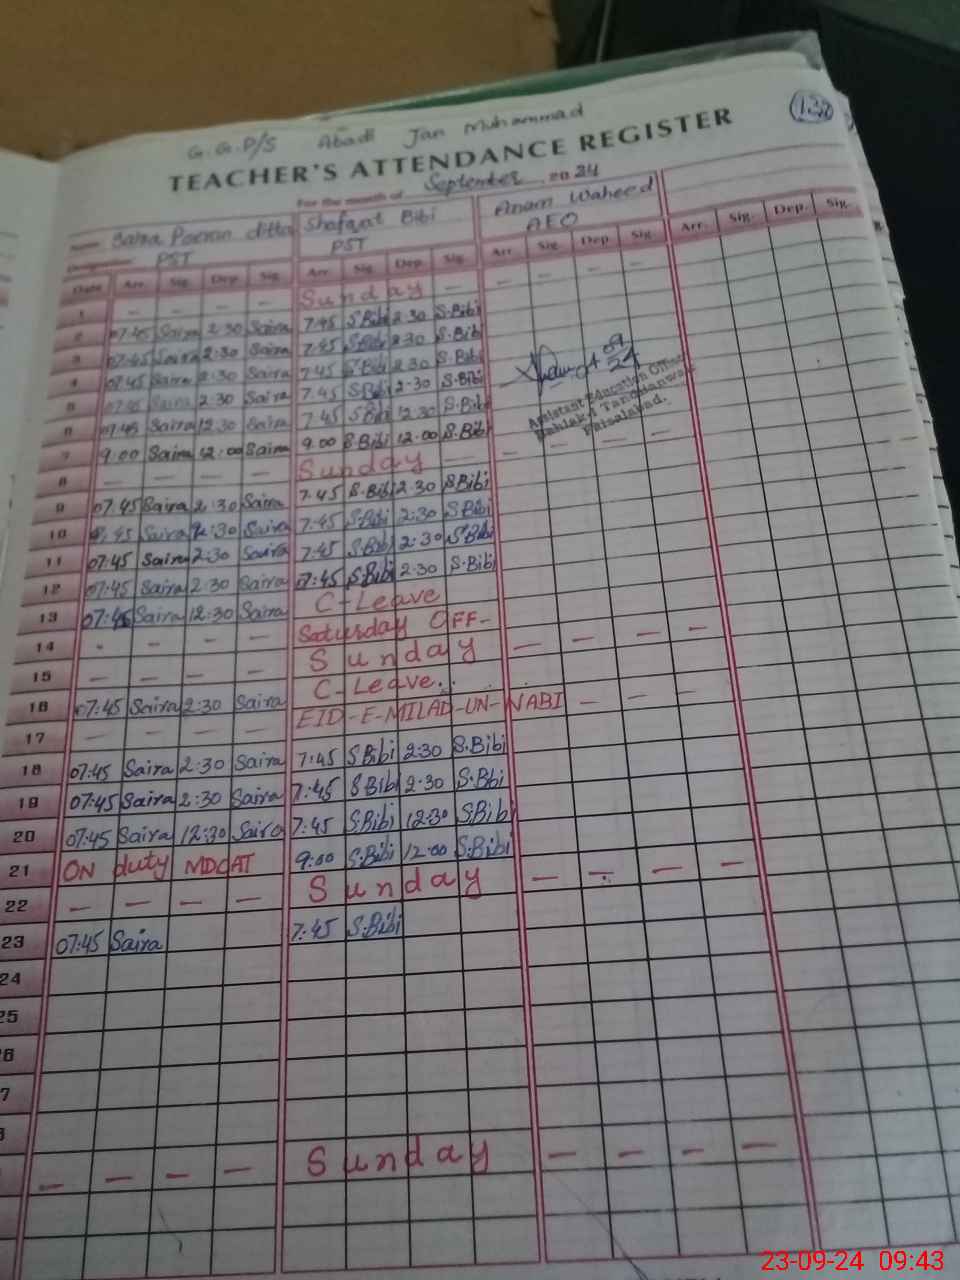 132
G.G.P/S Abadi Jan Muhammad
TEACHER'S ATTENDANCE REGISTER
For the month of September 2024
Name Saira Parvan ditta Shafaat Bibi Anam Waheed
Designation PST PST AEO
Date Arr. Sig. Dep. Sig. Arr. Sig. Dep. Sig. Arr. Sig. Dep. Sig. Arr. Sig. Dep. Sig.
1 — — — — Sunday — — — —
2 07:45 Saira 2:30 Saira 7:45 S.Bibi 2:30 S.Bibi
3 07:45 Saira 2:30 Saira 7:45 S.Bibi 2:30 S.Bibi
4 07:45 Saira 2:30 Saira 7:45 S.Bibi 2:30 S.Bibi
5 07:45 Saira 2:30 Saira 7:45 S.Bibi 2:30 S.Bibi
09
24
Assistant Education Officer
Tandlianwala
Faisalabad.
6 07:45 Saira 12:30 Saira 7:45 S.Bibi 12:30 S.Bibi
7 9:00 Saira 12:00 Saira 9:00 S.Bibi 12:00 S.Bibi
8 — — — — Sunday — — — —
9 07:45 Saira 2:30 Saira 7:45 S.Bibi 2:30 S.Bibi
10 07:45 Saira 2:30 Saira 7:45 S.Bibi 2:30 S.Bibi
11 07:45 Saira 2:30 Saira 7:45 S.Bibi 2:30 S.Bibi
12 07:45 Saira 2:30 Saira 07:45 S.Bibi 2:30 S.Bibi
13 07:45 Saira 12:30 Saira C-Leave
14 - - — — Saturday OFF-
15 — — — — Sunday — — — —
16 07:45 Saira 2:30 Saira C-Leave.
17 — — — — EID-E-MILAD-UN-NABI — — -
18 07:45 Saira 2:30 Saira 7:45 S.Bibi 2:30 S.Bibi
19 07:45 Saira 2:30 Saira 7:45 S.Bibi 2:30 S.Bibi
20 07:45 Saira 12:30 Saira 7:45 S.Bibi 12:30 S.Bibi
21 ON duty MDCAT 9:00 S.Bibi 12:00 S.Bibi
22 — — — — Sunday — — — —
23 07:45 Saira 7:45 S.Bibi
24
25
26
7
8
— — — — Sunday — — — —
23-09-24 09:43